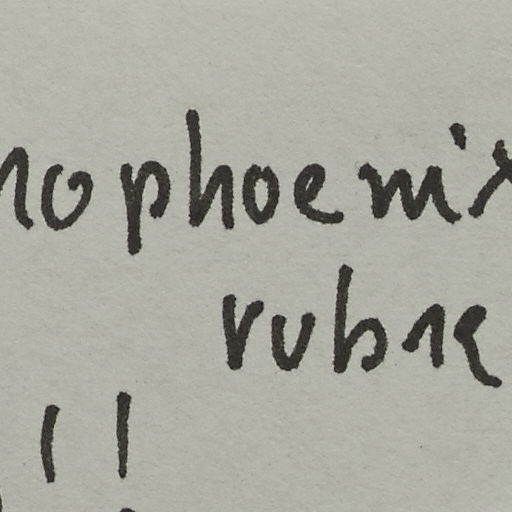 nophoenix
rubra
!!